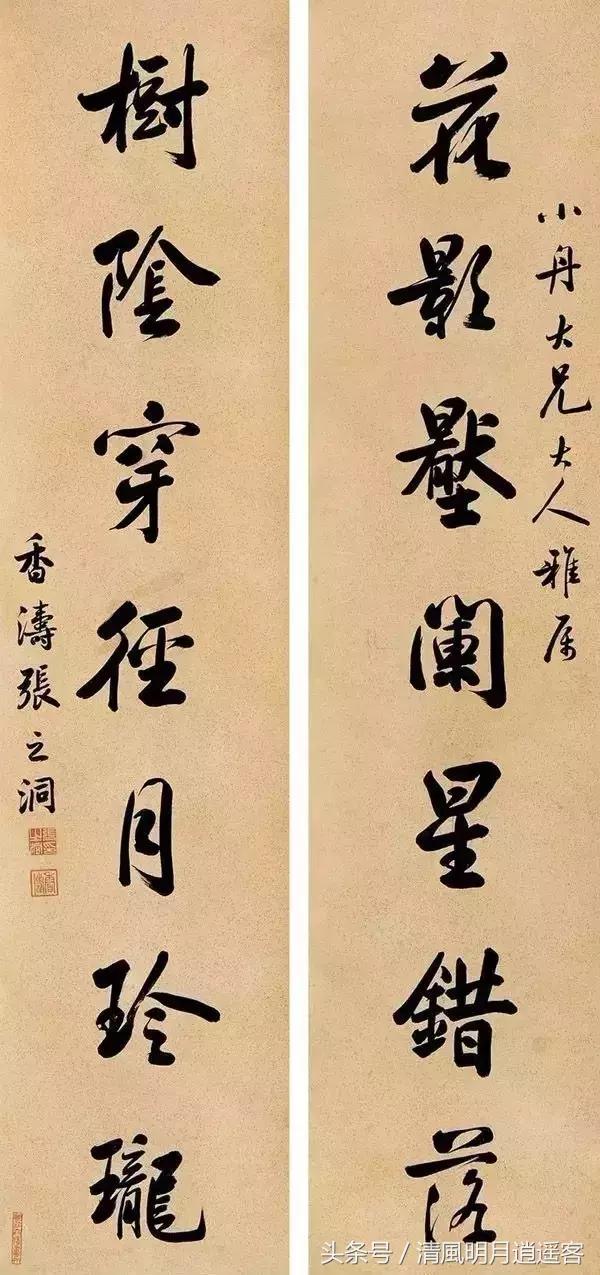 小舟大兄大人雅属
花影壓闌星錯落
樹陰穿徑月玲瓏
香濤張之洞
头条号 / 清風明月逍遥客